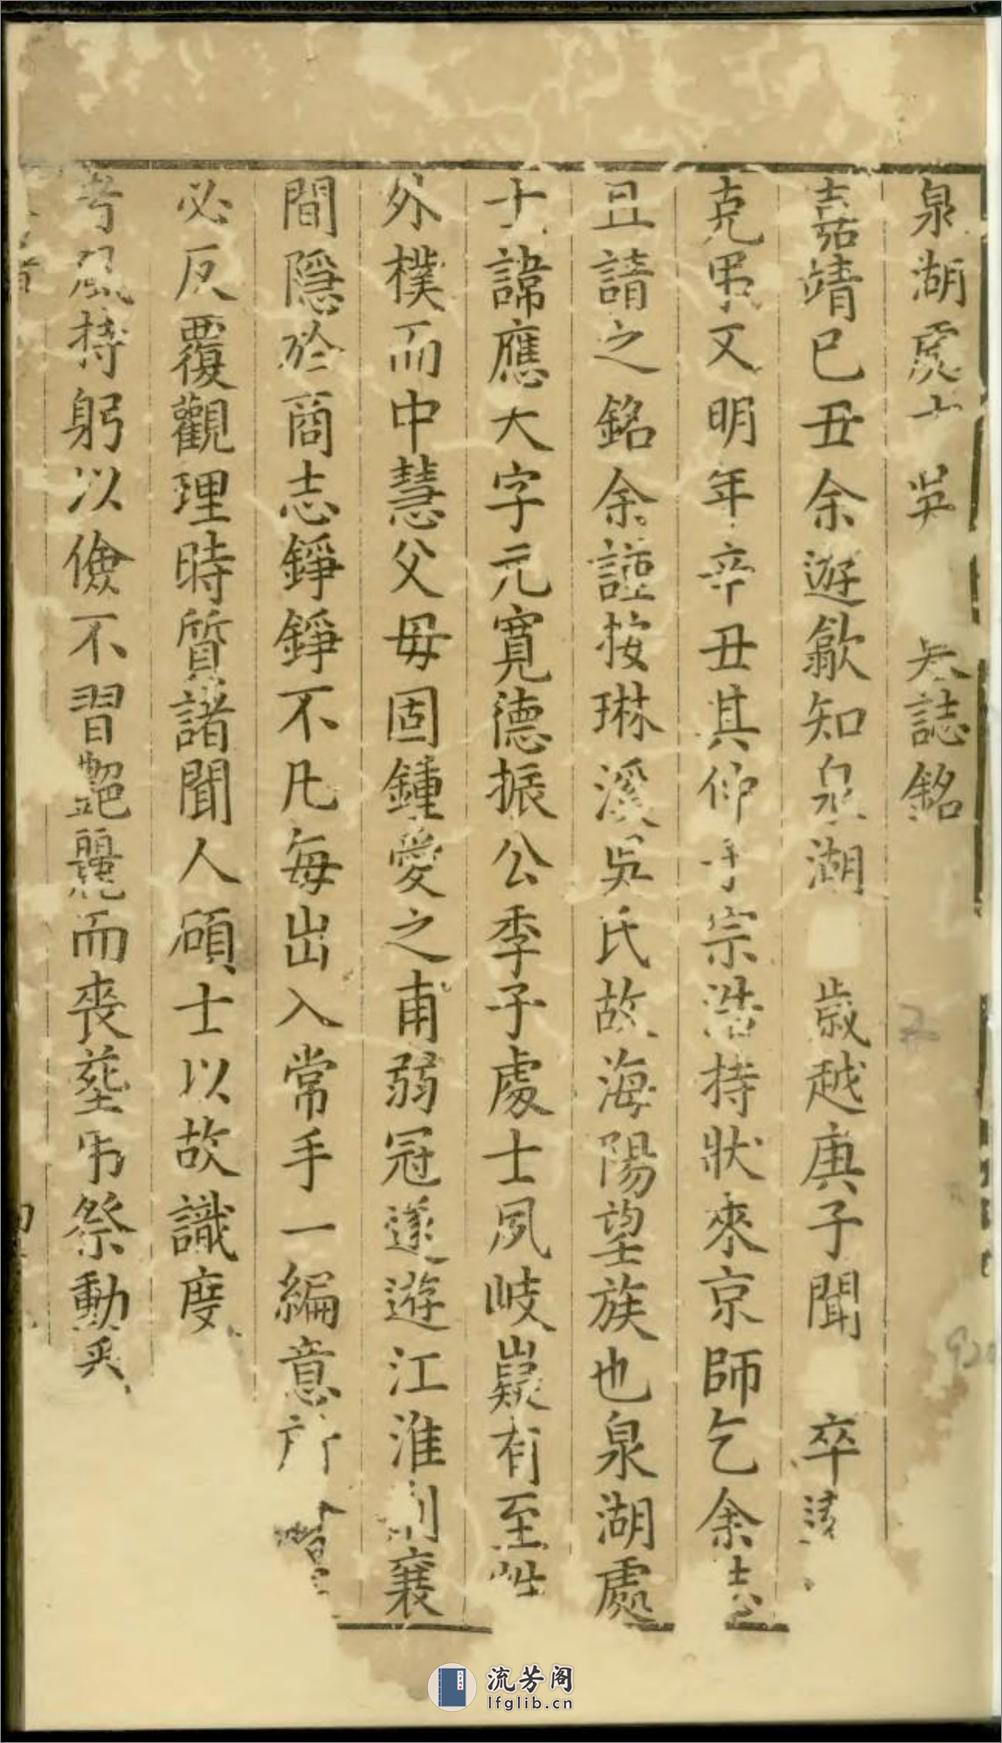 泉湖處士吳 誌銘
嘉靖已丑余遊歙知泉湖 歲越庚子聞 卒
克弔又明年辛丑其仲子宗浩持狀來京師乞余志
且請之銘余謹按琳溪吳氏故海陽望族也泉湖處
士諱應大字元寬德振公季子處士夙岐嶷有至性
外樸而中慧父毋固鍾愛之甫弱冠遂遊江淮荆襄
間隱於商志錚錚不凡每出入常手一編意所
必反覆觀理時質諸聞人碩士以故識度
持躬以儉不習艶麗而喪塟弔祭動
流芳阁
lfglib.cn